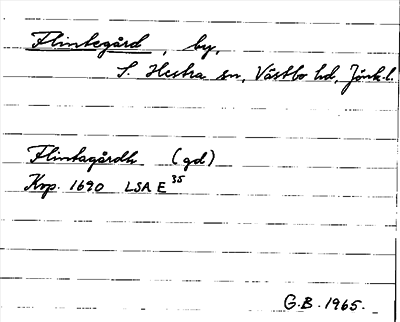 Flintegård, by,
S. Hestra sn, Västbo hd, Jönk. l.
Flintagårdh (gd)
Krp. 1690 LSA E 35
G.B. 1965.